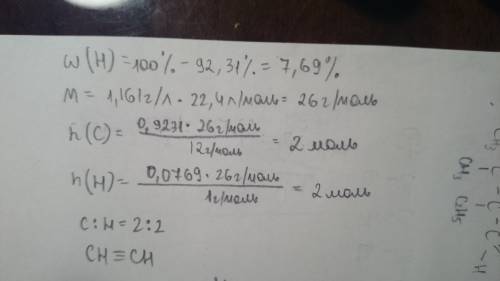 ω(H) = 100% - 92,31% = 7,69%
M = 1,161г/л · 22,4л/моль = 26г/моль
n(C) = 0,9231 · 26г/моль / 12г/моль = 2 моль
n(H) = 0,0769 · 26г/моль / 1г/моль = 2 моль
C:H = 2:2
CH≡CH
CH₃
CH₃ C₂H₅
C - C - H